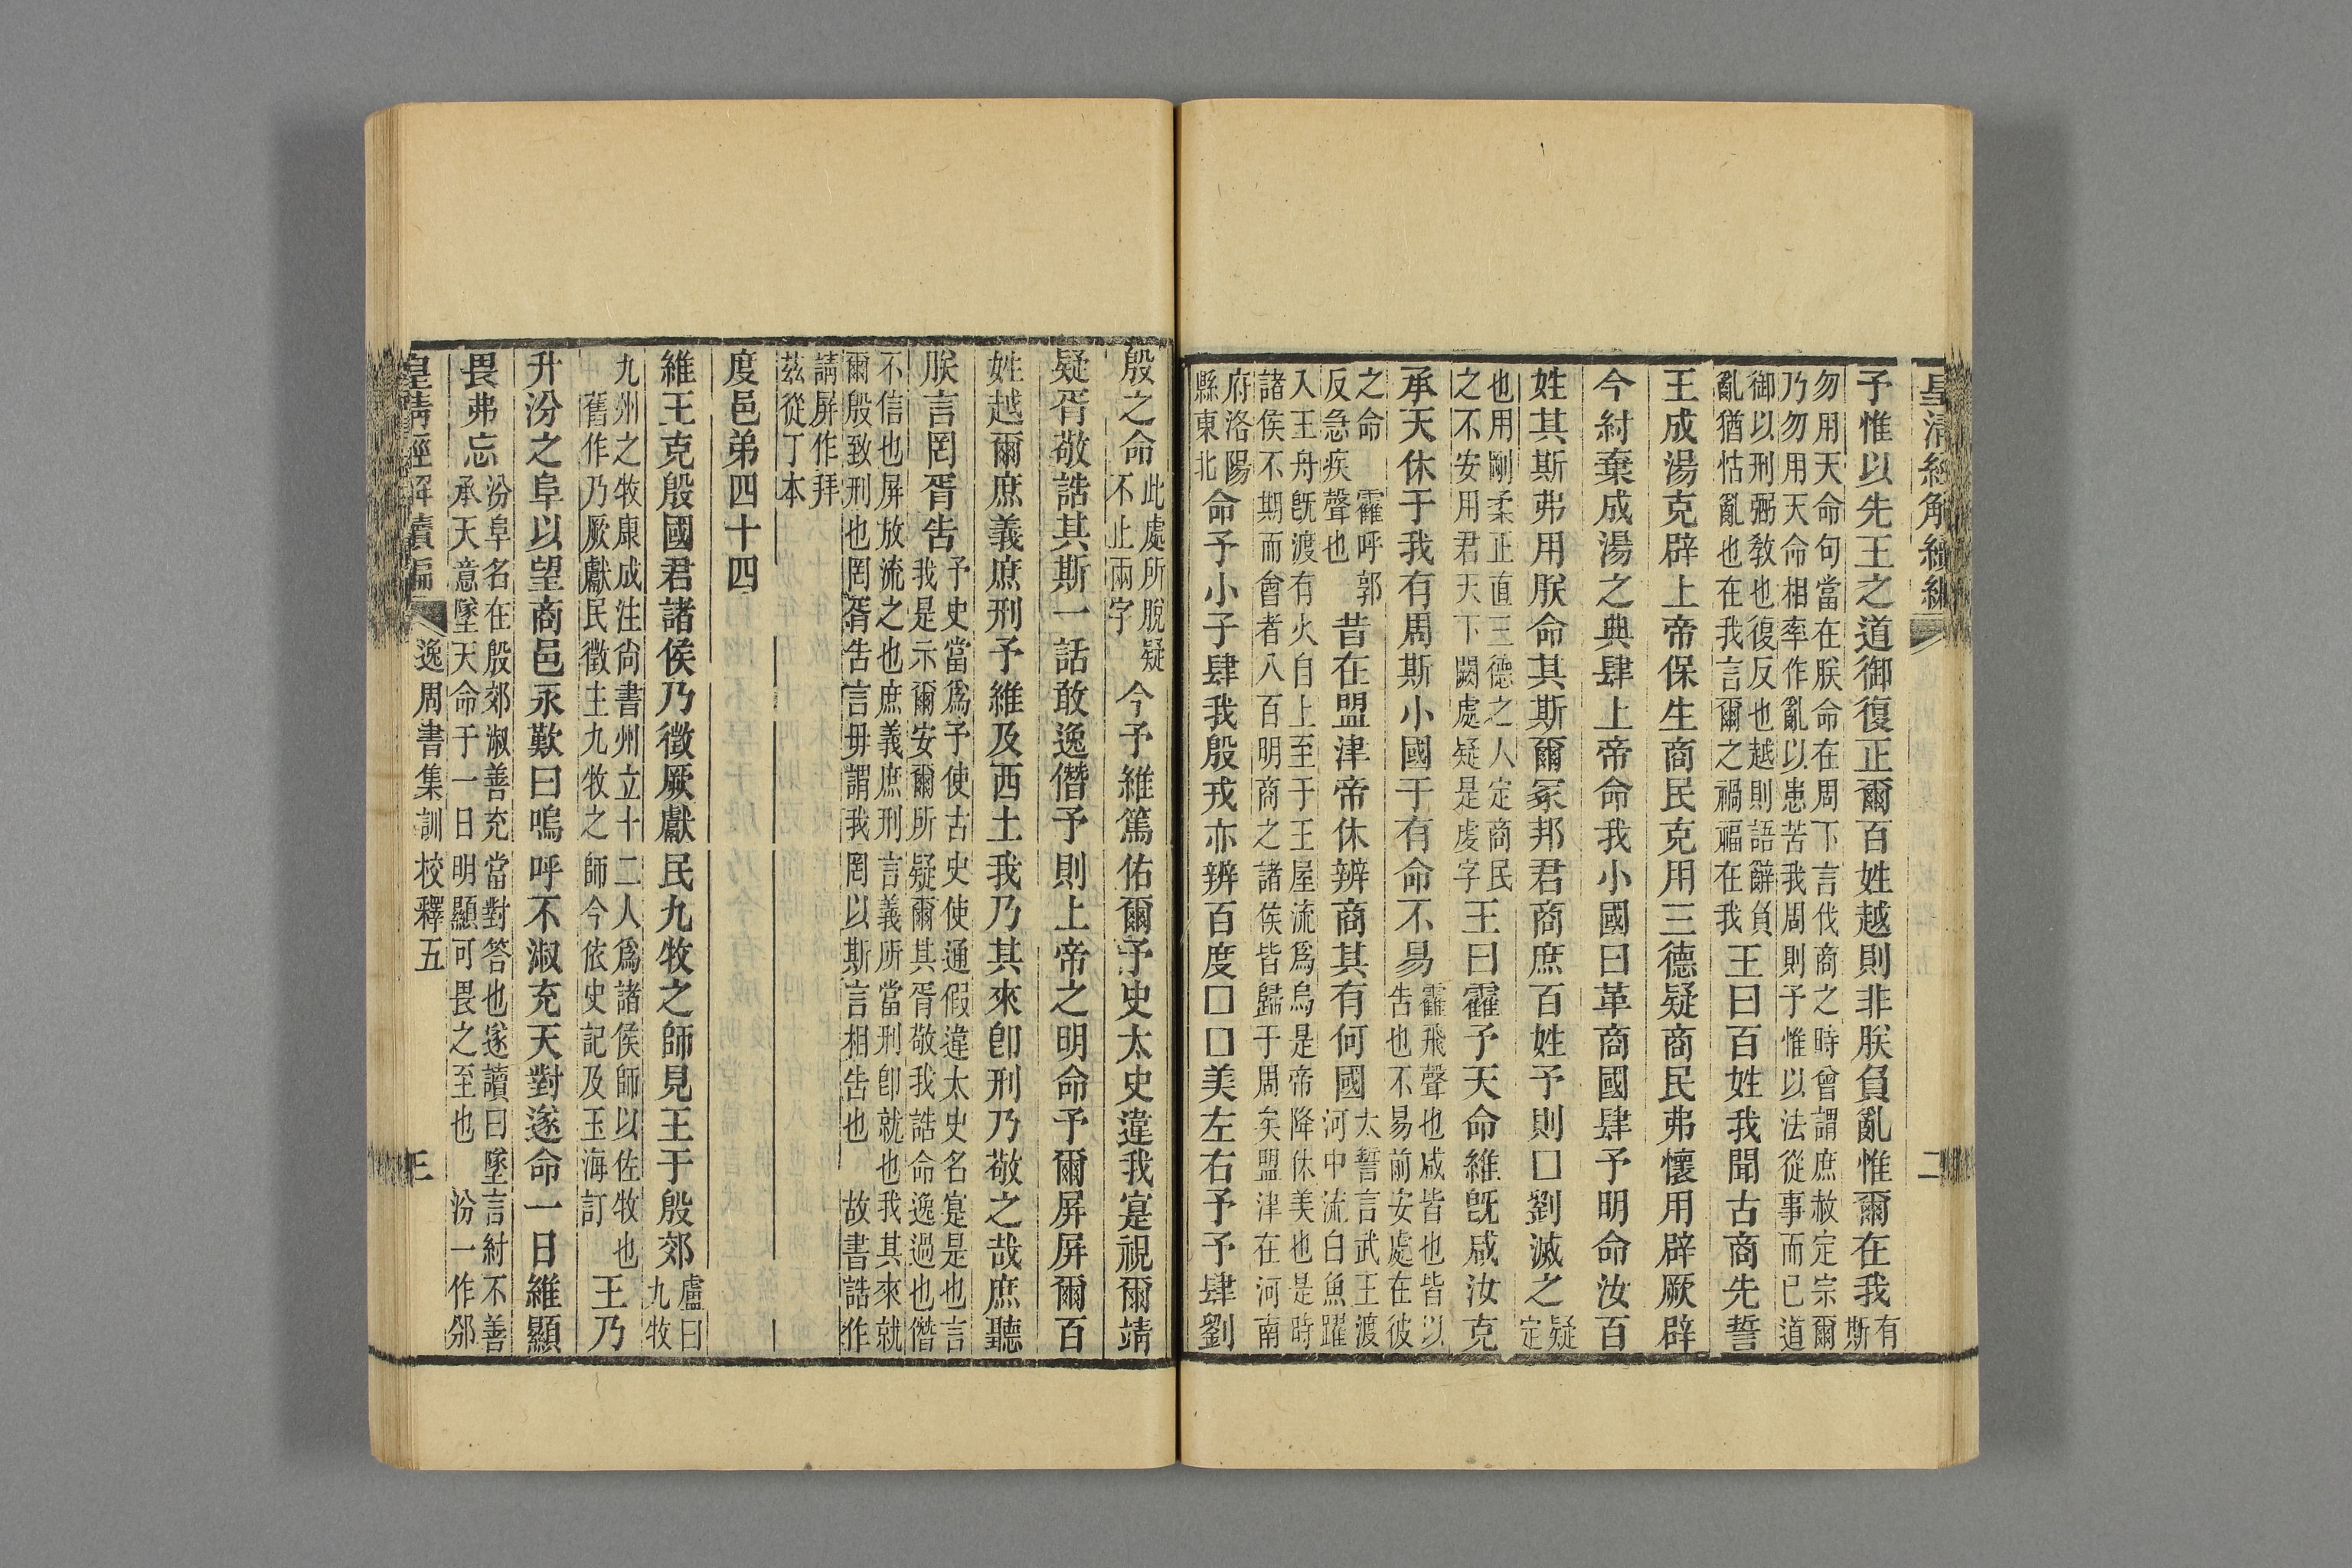 皇清經解續編 二
予惟以先王之道御復正爾百姓越則非朕負亂惟爾在我有斯
勿用天命句當在朕命在周下言伐商之時曾謂庶赦定宗爾
乃勿用天命相率作亂以患苦我周則予惟以法從事而已道
御以刑弼敎也復反也越則語辭負
亂猶怙亂也在我言爾之禍福在我王曰百姓我聞古商先誓
王成湯克辟上帝保生商民克用三德疑商民弗懷用辟厥辟
今紂棄成湯之典肆上帝命我小國曰革商國肆予明命汝百
姓其斯弗用朕命其斯爾冢邦君商庶百姓予則□劉滅之疑定
也用剛柔正直三德之人定商民
之不安用君天下闕處疑是虔字王曰霍予天命維旣咸汝克
承天休于我有周斯小國于有命不易霍飛聲也咸皆也皆以
告也不易前安處在彼
之命 霍呼郭
反急疾聲也昔在盟津帝休辨商其有何國太誓言武王渡
河中流白魚躍
入王舟旣渡有火自上至于王屋流爲烏是帝降休美也是時
諸侯不期而會者八百明商之諸侯皆歸于周矣盟津在河南
府洛陽
縣東北命予小子肆我殷戎亦辨百度□□美左右予予肆劉
殷之命此處所脫疑
不止兩字今予維篤佑爾予史太史違我寔視爾靖
疑胥敬誥其斯一話敢逸僭予則上帝之明命予爾屏屏爾百
姓越爾庶義庶刑予維及西土我乃其來卽刑乃敬之哉庶聽
朕言罔胥告予史當爲予使古史使通假違太史名寔是也言
我是示爾安爾所疑爾其胥敬我誥命逸過也僭
不信也屏放流之也庶義庶刑言義所當刑卽就也我其來就
爾殷致刑也罔胥告言毋謂我罔以斯言相告也 故書誥作
請屏作拜
茲從丁本
度邑弟四十四
維王克殷國君諸侯乃徵厥獻民九牧之師見王于殷郊盧曰
九牧
九州之牧康成注尙書州立十二人爲諸侯師以佐牧也
舊作乃厥獻民徵主九牧之師今依史記及玉海訂王乃
升汾之阜以望商邑永歎曰嗚呼不淑充天對遂命一日維顯
畏弗忘汾阜名在殷郊淑善充當對答也遂讀曰墜言紂不善
承天意墜天命于一日明顯可畏之至也 汾一作邠
皇清經解續編 逸周書集訓校釋五 三